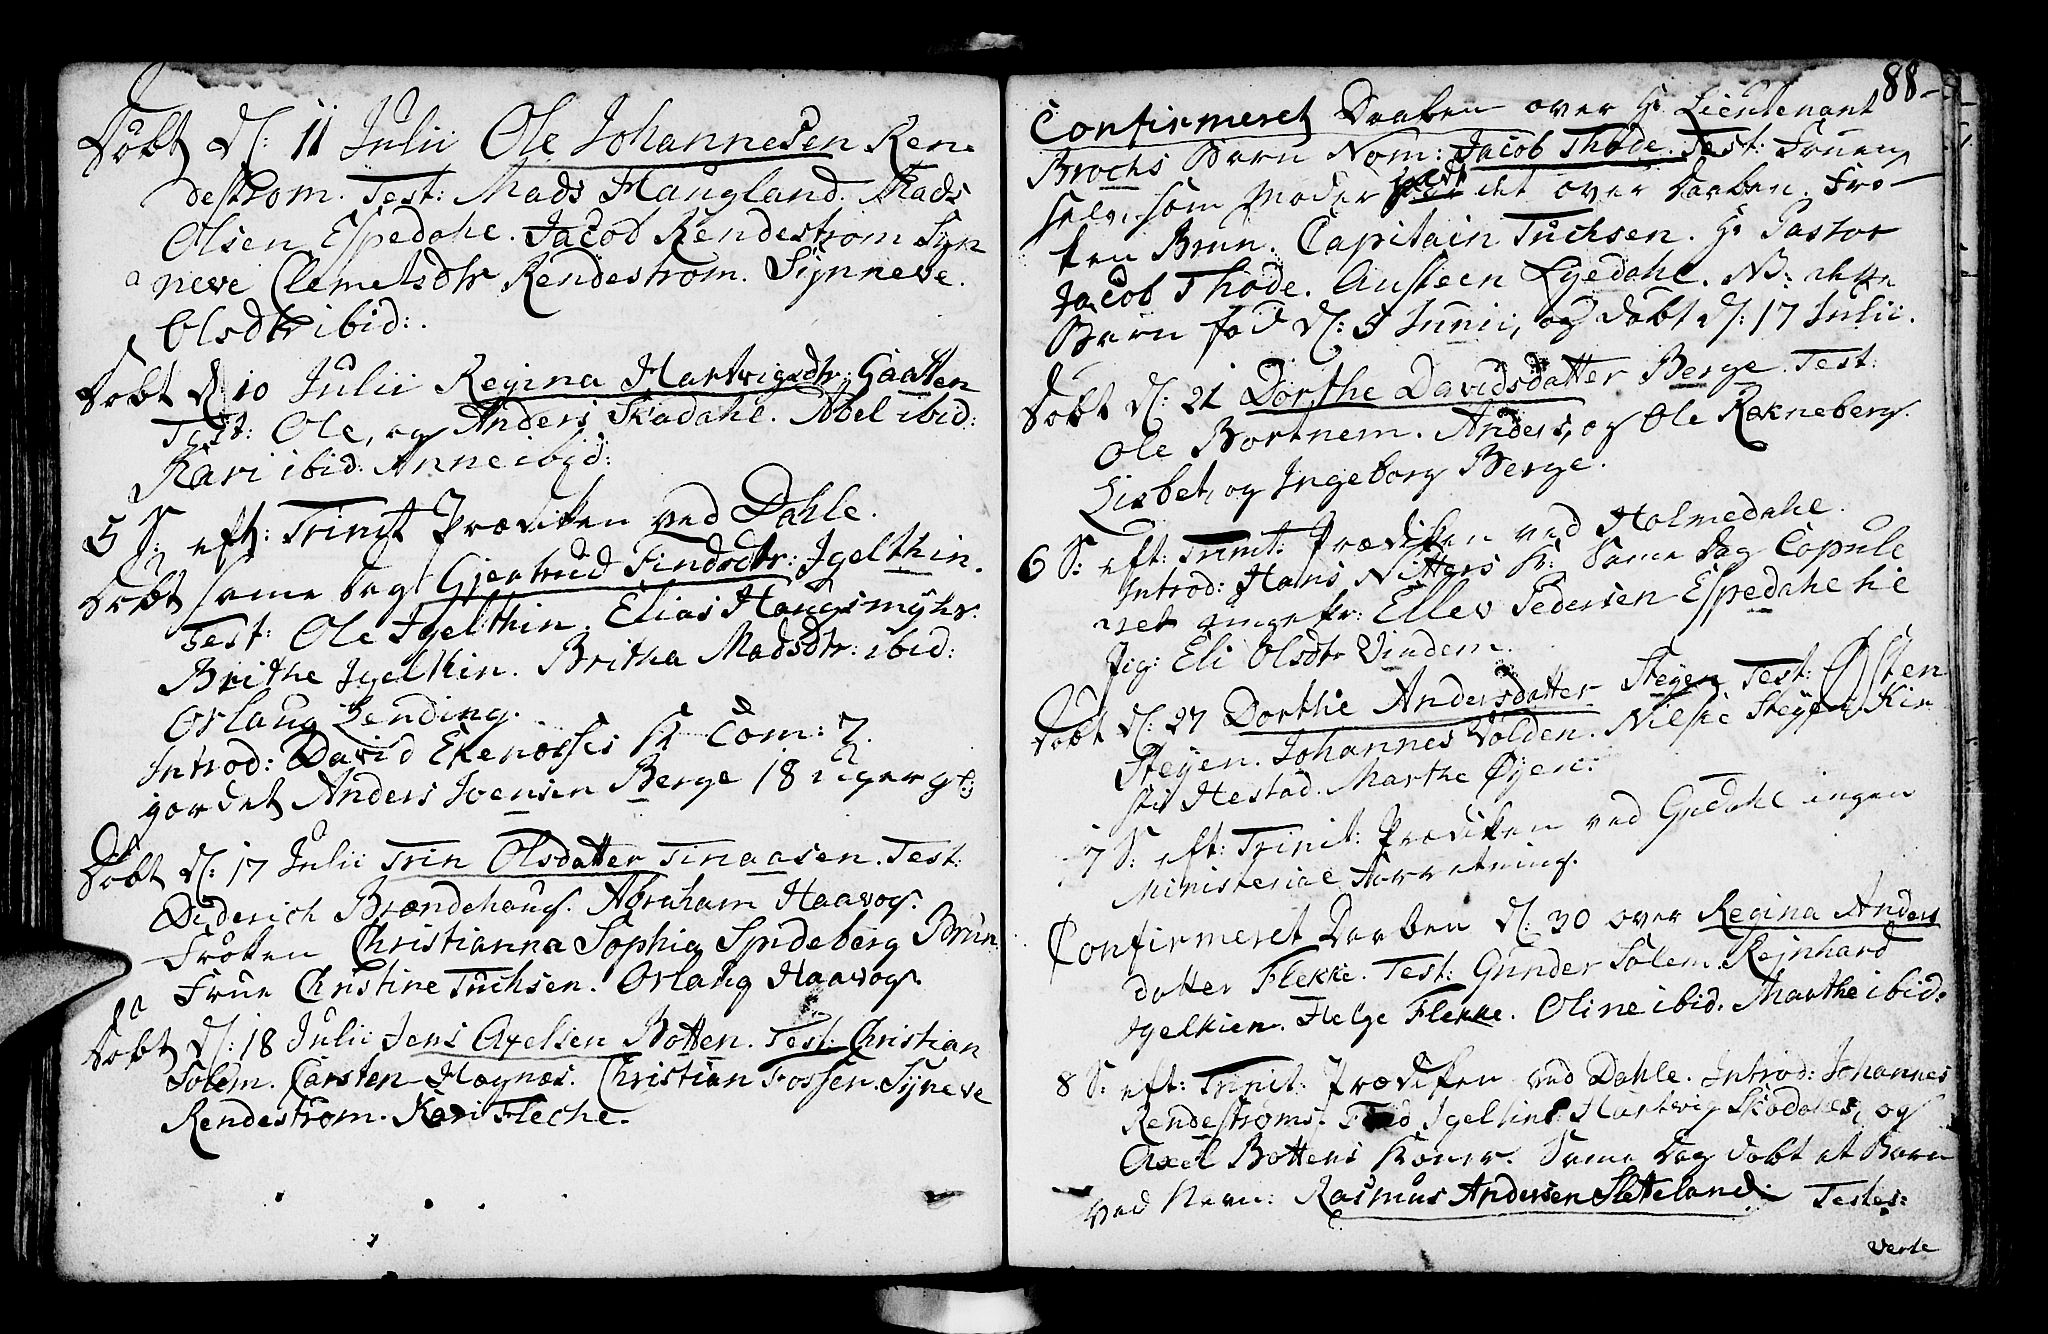 Døbt d: 11 Julii Ole Johannesen Ren
destrom. Test: Mads Haugland. Mads
Olsen Espedahl. Jacob Rendestrom Syn
neve Clemetsdtr Rendestrom. Synneve.
Olsdtr ibid:.
Døbt d 10 Julii Regina Hartvigsdtr: Gaatten
Test: Ole, og Anders Skadahl. Abel ibid:
Kari ibid: Anne ibid:
5 S: eft: Trinit Prædiken ved Dahle.
Døbt samme dag Gjertrud Findsdtr: Igelthin.
Test: Ole Igelthin. Elias Haugsmyhr.
Brithe Igelthin. Britha Madsdtr: ibid:
Orlaug Lending.
Introd: David Ekenæsses K Com: 7.
jordet Anders Joensen Berge 18 uger gl:
Døbt d: 17 Julii Trin Olsdatter Tinaasen. Test:
Diderich Brændehaug. Abraham Haavog.
Frøken Christianna Sophia Syndeberg Brun
Frue Christine Tuchsen. Orlaug Haavog.
Døbt d: 18 Julii Jens Axelsen Botten. Test: Christian
Solem. Carsten Hægnæs. Christian Fossen. Syneve
Rendestrom. Kari Fleche.
88
Confirmeret Daaben over Hr Lieutenant
Brochs Barn Nom: Jacob Thode. Test: Fruen
selv, som Moder holdt det over Daaben. Frø-
ken Brun. Capitain Tuchsen. Hr Pastor
Jacob Thode. Austeen Lyedahl. NB: dette
Barn fød d: 5 Junii, og døbt d: 17 Julii.
Døbt d: 21 Dorthe Davidsdatter Berge. Test:
Ole Bortnem. Anders, og Ole Rækneberg.
Lisbet, og Ingeborg Berge.
6 S: eft: Trinit: Prædiken ved Holmedahl.
Introd: Hans Nitters K: Same Dag Copule
ret ungekr: Ellev Pedersen Espedahl til
Pig: Eli Olsdtr Vindem.
Døbt d: 27 Dorthe Andersdatter Steyen Test: Østen
Steyen. Johannes Volden. Nilsie Steyen Kir
sti Hestad. Marthe Øyere.
7 S: eft: Trinit: Prædiken ved Guedahl ingen
Ministerial Forretning.
Confirmeret Daaben d: 30 over Regina Anders
datter Flekke. Test: Gunder Solem. Rejnhard
Igelkien. Helge Flekke. Oline ibid. Marthe ibid:
8 S: eft: Trinit: Prædiken ved Dahle. Introd: Johannes
Rendestroms. Find Igelkins Hartvig Skodahls, og
Axel Bottens Koner. Same Dag døbt et Barn
ved Navn: Rasmus Andersen Sletteland. Testes:
verte